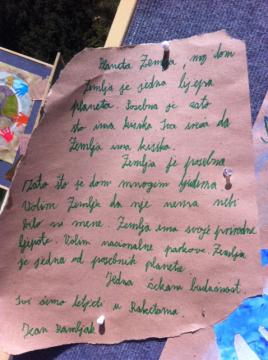 Planeta Zemlja moj dom
Zemlja je jedna lijepa
planeta. Posebna je zato
što ima kiska. Sva sreća da
Zemlja ima kiska.
Zemlja je posebna
zato što je dom mnogim ljudima
Volim Zemlju da nje nema nebi
bilo ni mene. Zemlja ima svoje prirodne
ljepote. Volim nacionalne parkove. Zemlja
je jedna od posebnih planeta.
Jedna čekam budućnost.
Svi ćemo letjeti u Raketama
Ivan